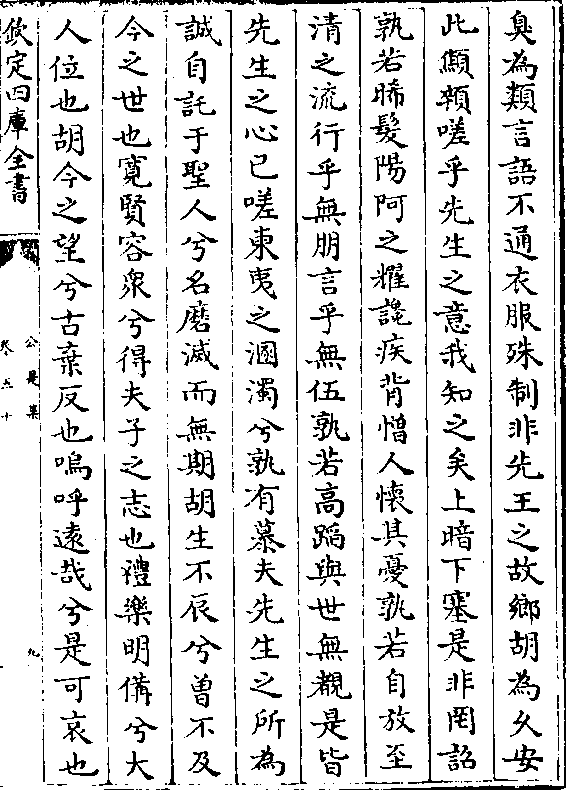 臭為類言語不通衣服殊制非先王之故鄉胡為久安
此顑頷嗟乎先生之意我知之矣上暗下塞是非罔詔
孰若晞髮陽阿之耀讒疾背憎人懷其憂孰若自放至
清之流行乎無朋言乎無伍孰若高蹈與世無覩是皆
先生之心已嗟東夷之溷濁兮孰有慕夫先生之所為
誠自託于聖人兮名磨滅而無期胡生不辰兮曾不及
今之世也寛賢容衆兮得夫子之志也禮樂明備兮大
人位也胡今之望兮古棄反也嗚呼遠哉兮是可哀也
欽定四庫全書
公是集
卷五十
九